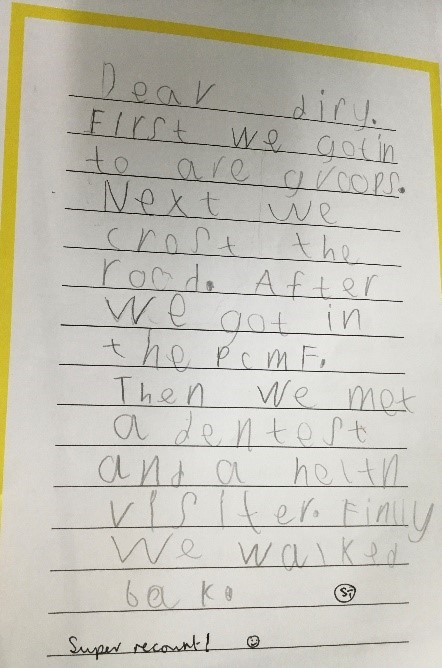 Dear diry.
First we got in
to are groops.
Next we
crost the
rood. After
we got in
the pcmF.
Then we met
a dentest
and a helth
visiter. Finlly
We walked
bak.
ST
Super recount!